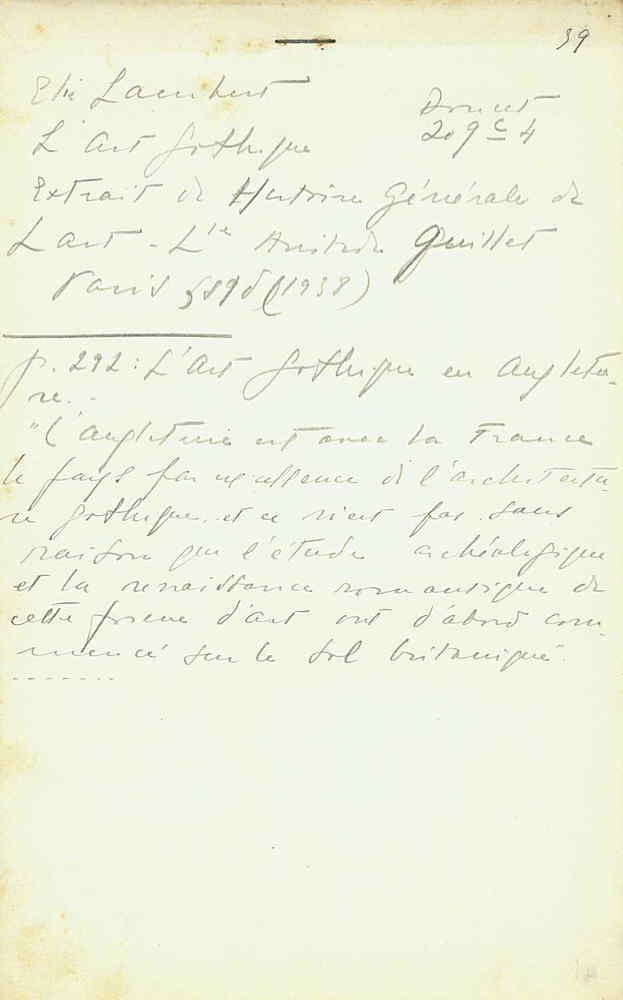 39
Elie Lambert
Doucet
L'Art Gothique
209 c 4
Extrait de Histoire Générale de
L'art - L^ie Aristide Quillet
Paris (1938)
p. 292 : L'Art Gothique en Angleter-
re. -
"L'angleterre est avec la France
le pays par excellence de l'architectu-
re gothique, et ce n'est pas sans
raison que l'étude archéologique
et la renaissance romantique de
cette forme d'art ont d'abord com-
mencé sur le sol britanique".
-------